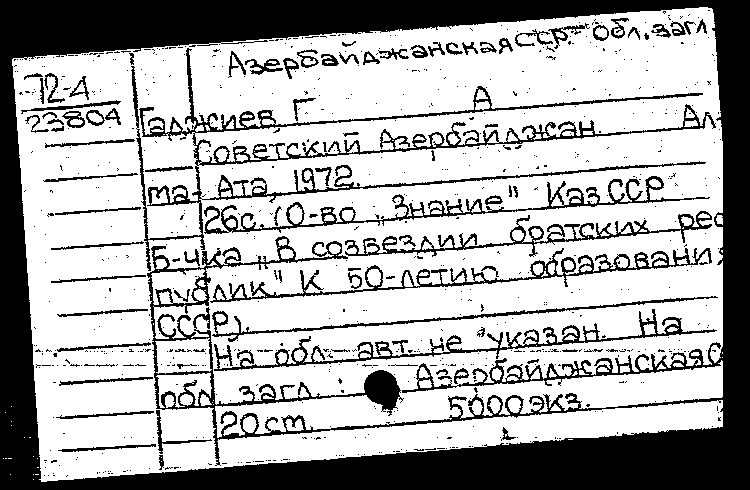 Азербайджанская ССР - обл. загл.
72-4
23804
Гаджиев, Г А
Советский Азербайджан. Ал-
ма-Ата, 1972.
26с. (О-во „Знание" КазССР.
Б-чка „В созвездии братских рес
публик." К 50-летию образования
СССР).
На обл. авт. не указан. На
обл. загл.: Азербайджанская С
20 cm. 5000 экз.